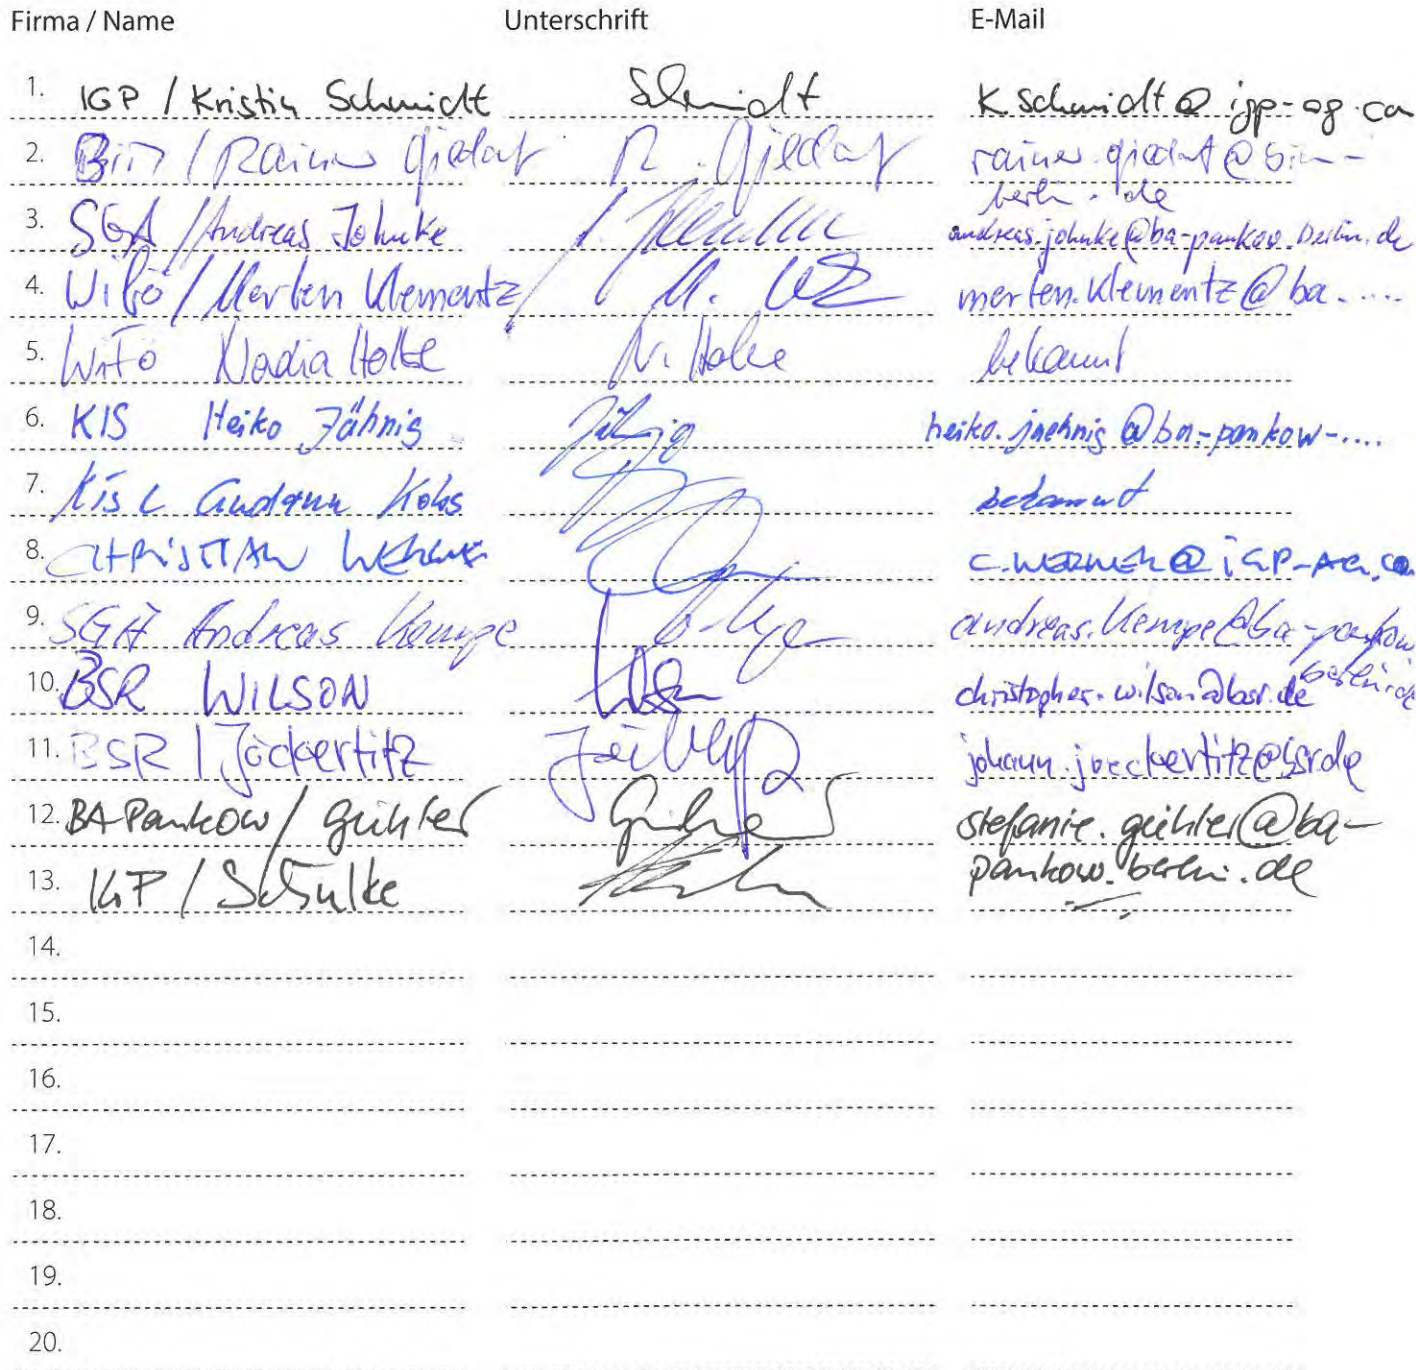 Firma / Name Unterschrift E-Mail
1. IGP / Kristin Schmidt Schmidt K.Schmidt@igp-ag.com
2. / Rainer R.
berlin.de
3. SGA / Andreas Johnke andreas.johnke@ba-pankow.berlin.de
4. / Merten Klementz M. merten.klementz@ba-....
5. WiFö Nadia Holbe N. bekannt
6. KIS Heiko Jähnig Jähnig heiko.jaehnig@ba-pankow-....
7. bekannt
8. CHRISTIAN WERNER C.WERNER@iGP-AG.com
9. SGA Andreas Kempe andreas.kempe@ba-pankow
berlin.de
10. BSR WILSON christopher.wilson@bsr.de
11. BSR / Jöckertitz johann.joeckertitz@bsr.de
12. BA Pankow / stefanie.
13. IGP / Schulke pankow.berlin.de
14.
15.
16.
17.
18.
19.
20.